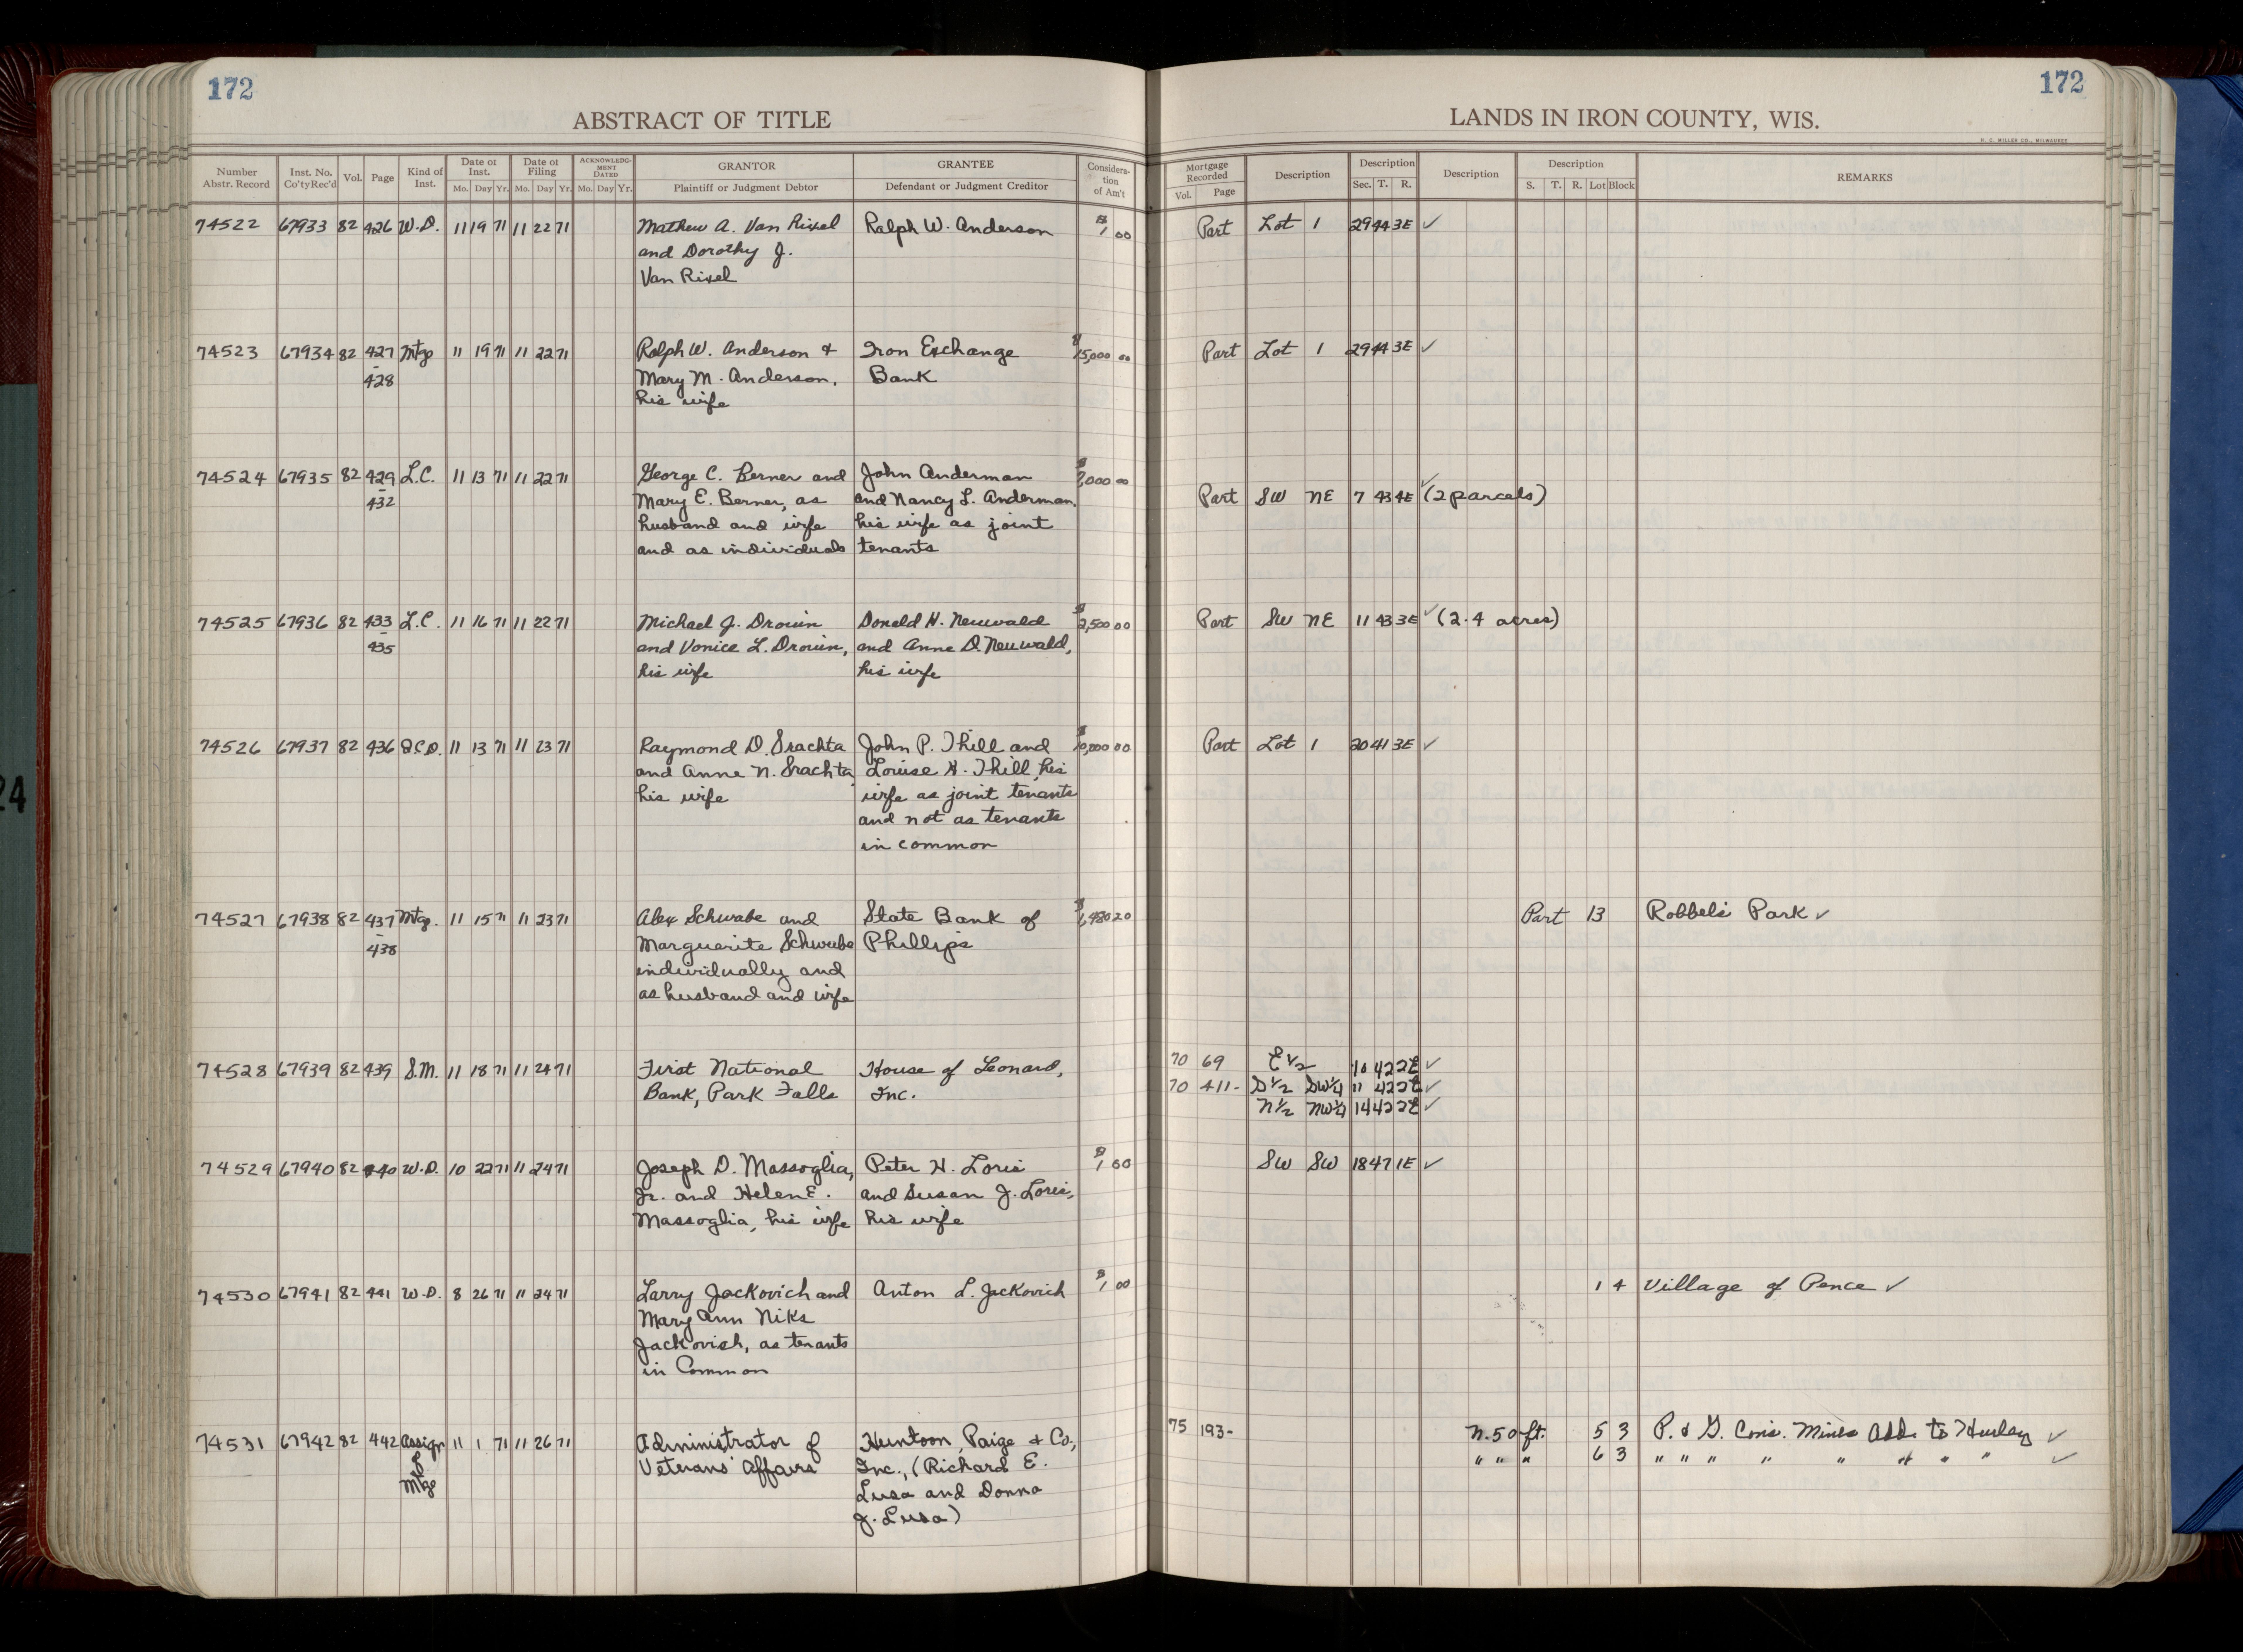 172
172
ABSTRACT OF TITLE
LANDS IN IRON COUNTY, WIS.
H. C. MILLER CO., MILWAUKEE
Number Abstr. Record | Inst. No. Co'tyRec'd | Vol. | Page | Kind of Inst. | Date of Inst. Mo. Day Yr. | Date of Filing Mo. Day Yr. | ACKNOWLEDGMENT DATED Mo. Day Yr. | GRANTOR Plaintiff or Judgment Debtor | GRANTEE Defendant or Judgment Creditor | Consideration of Am't | Mortgage Recorded Vol. Page | Description | Description Sec. T. R. | Description | Description S. T. R. Lot Block | REMARKS
74522 67933 82 426 W.D. 11 19 71 11 22 71 Mathew A. Van Rixel Ralph W. Anderson $1 00 Part Lot 1 29 44 3E ✓
and Dorothy J.
Van Rixel
74523 67934 82 427 Mtge 11 19 71 11 22 71 Ralph W. Anderson & Iron Exchange $15,000 00 Part Lot 1 29 44 3E ✓
-428 Mary M. Anderson, Bank
his wife
74524 67935 82 429 L.C. 11 13 71 11 22 71 George C. Berner and John Anderman ,000 00
-432 Mary E. Berner, as and Nancy L. Anderman, Part SW NE 7 43 4E ✓ (2 parcels)
husband and wife his wife as joint
and as individuals tenants
74525 67936 82 433 L.C. 11 16 71 11 22 71 Michael J. Drouin Donald H. Neuwald $2,500 00 Part SW NE 11 43 3E ✓ (2.4 acres)
-435 and Vonice L. Drouin, and Anne D. Neuwald,
his wife his wife
74526 67937 82 436 11 13 71 11 23 71 Raymond D. Srachta John P. Thill and $10,000 00 Part Lot 1 20 41 3E ✓
and Anne N. Srachta, Louise H. Thill, his
his wife wife as joint tenants
and not as tenants
in common
74527 67938 82 437 Mtge. 11 15 71 11 23 71 Alex Schwabe and State Bank of $1,480 20 Part 13 Robbel's Park ✓
-438 Marguerite Schwabe Phillips
individually and
as husband and wife
74528 67939 82 439 S.M. 11 18 71 11 24 71 First National House of Leonard, 70 69 E 1/2 10 42 2E ✓
Bank, Park Falls Inc. 70 411- S 1/2 SW 1/4 11 42 2E ✓
N 1/2 NW 1/4 14 42 2E ✓
74529 67940 82 440 W.D. 10 22 71 11 24 71 Joseph D. Massoglia, Peter H. Loris $1 00 SW SW 18 47 1E ✓
Jr. and Helen E. and Susan J. Loris,
Massoglia, his wife his wife
74530 67941 82 441 W.D. 8 26 71 11 24 71 Larry Jackovich and Anton L. Jackovich $1 00 1 4 Village of Pence ✓
Mary Ann Niks
Jackovich, as tenants
in Common
74531 67942 82 442 Assign 11 1 71 11 26 71 Administrator of Huntoon, Paige & Co., 75 193- N. 50 ft. 5 3 P. & G. Cons. Mines Add. to Hurley ✓
of Veterans' Affairs Inc., (Richard E. " " " 6 3 " " " " " " " " ✓
Mtge Lusa and Donna
J. Lusa)
24